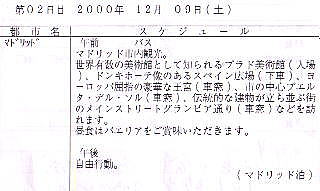 第02日目 2000年 12月 09日(土)
都市名 スケジュール
マドリッド 午前 バス
マドリッド市内観光。
世界有数の美術館として知られるプラド美術館(入場
)、ドンキホーテ像のあるスペイン広場(下車)、ヨ
ーロッパ屈指の豪華な王宮(車窓)、市の中心プエル
タ・デル・ソル(車窓)、伝統的な建物が立ち並ぶ街
のメインストリートグランビア通り(車窓)などを訪
れます。
昼食はパエリアをご賞味いただきます。
午後
自由行動。
(マドリッド泊)